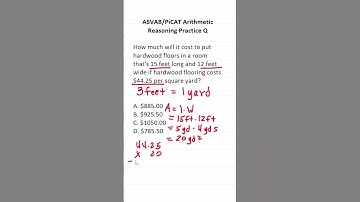 ASVAB/PiCAT Arithmetic
Reasoning Practice Q
How much will it cost to put
hardwood floors in a room
that's 15 feet long and 12 feet
wide if hardwood flooring costs
$44.25 per square yard?
3feet = 1yard
A. $885.00
B. $925.50
C. $1050.00
D. $785.50
A = l·W
= 15ft·12ft
= 5yd·4yds
= 20yd2
44.25
x 20